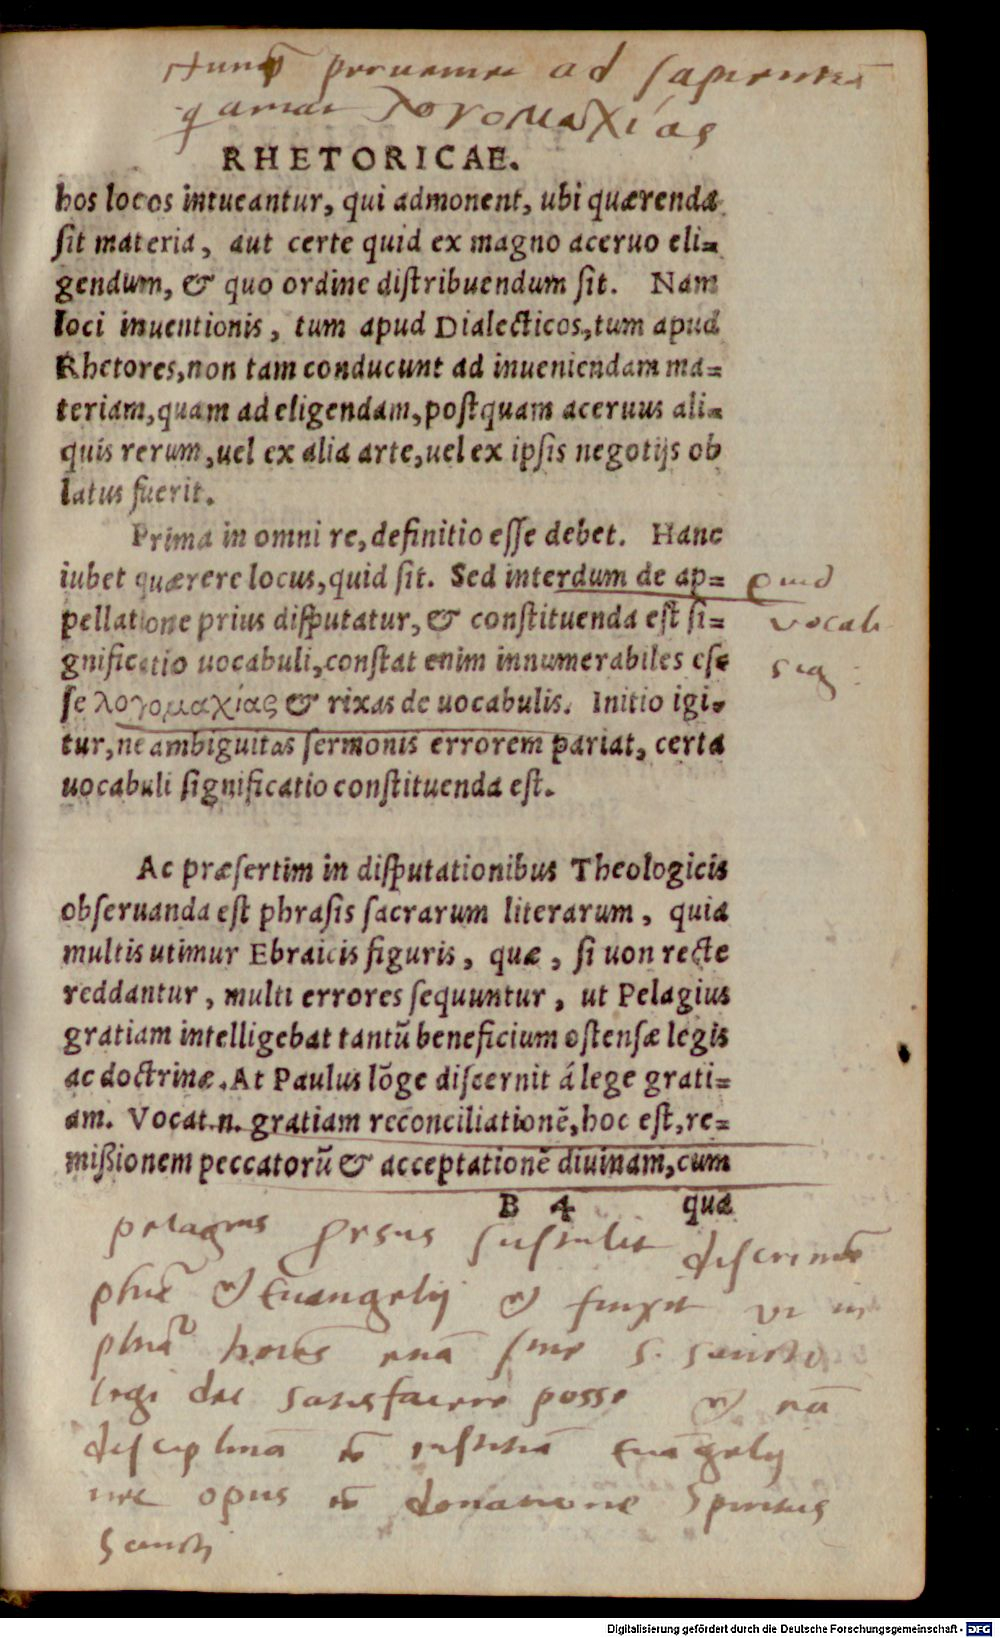 nunquam perueniet ad sapientiam
qui amat λογομαχίας
RHETORICAE.
hos locos intueantur, qui admonent, ubi quærenda
sit materia, aut certe quid ex magno aceruo eli=
gendum, & quo ordine distribuendum sit. Nam
loci inuentionis, tum apud Dialecticos, tum apud
Rhetores, non tam conducunt ad inueniendam ma=
teriam, quam ad eligendam, postquam aceruus ali=
quis rerum, uel ex alia arte, uel ex ipsis negotijs ob
latus fuerit.
Prima in omni re, definitio esse debet. Hanc
iubet quærere locus, quid sit. Sed interdum de ap=
quid
pellatione prius disputatur, & constituenda est si=
vocab
gnificatio uocabuli, constat enim innumerabiles es=
sig
se λογομαχίας & rixas de uocabulis. Initio igi=
tur, ne ambiguitas sermonis errorem pariat, certa
uocabuli significatio constituenda est.
Ac præsertim in disputationibus Theologicis
obseruanda est phrasis sacrarum literarum, quia
multis utimur Ebraicis figuris, quæ, si non recte
reddantur, multi errores sequuntur, ut Pelagius
gratiam intelligebat tantũ beneficium ostensæ legis
ac doctrinæ. At Paulus lõge discernit á lege grati=
am. Vocat.n. gratiam reconciliationẽ, hoc est, re=
mißionem peccatorũ & acceptationẽ diuinam, cum
B 4 qua
pelagius sustulit discrimen
et Euangelij et finxit
sine s. sancto
legi dei satisfacere posse et
disciplinã Euãgelij
nec opus donatione Spiritus
Sancti
Digitalisierung gefördert durch die Deutsche Forschungsgemeinschaft - DFG